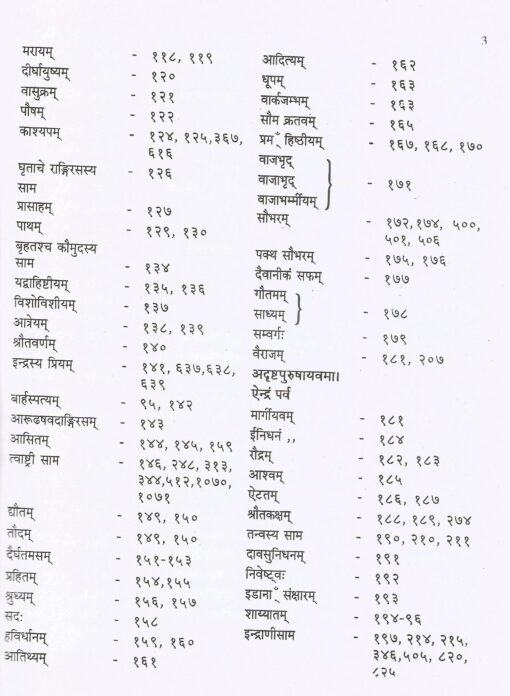 3
मरायम् - ११८, ११९
दीर्घायुष्यम् - १२०
वासुक्रम् - १२१
पौषम् - १२२
काश्यपम् - १२४, १२५,३६७,
६१६
घृताचे राङ्गिरसस्य - १२६
साम
प्रासाहम् - १२७
पाथम् - १२९, १३०
बृहतश्च कौमुदस्य
साम - १३४
यद्वाहिष्टीयम् - १३५, १३६
विशोविशीयम् - १३७
आत्रेयम् - १३८, १३९
श्रौतवर्णम् - १४०
इन्द्रस्य प्रियम् - १४१, ६३७,६३८,
६३९
बार्हस्पत्यम् - ९५, १४२
आरूढषवदाङ्गिरसम् - १४३
आसितम् - १४४, १४५, १५९
त्वाष्ट्री साम - १४६, २४८, ३१३,
३४४,५१२,१०७०,
१०७१
द्यौतम् - १४९, १५०
तौदम् - १४९, १५०
दैर्घतमसम् - १५१-१५३
प्रहितम् - १५४,१५५
श्रुध्यम् - १५६, १५७
सदः - १५८
हविर्धानम् - १५९, १६०
आतिथ्यम् - १६१
आदित्यम् - १६२
धूपम् - १६३
वार्कजम्भम् - १६३
सौम क्रतवम् - १६५
प्रमँ हिष्ठीयम् - १६७, १६८, १७०
वाजभृद्
वाजाभृद् - १७१
वाजाभर्म्मीयम्
सौभरम् - १७२,१७४, ५००,
५०१, ५०६
पक्थ सौभरम् - १७५, १७६
दैवानीकं सफम् - १७७
गौतमम्
साध्यम् - १७८
सम्वर्गः - १७९
वैराजम् - १८१, २०७
अदृष्टपुरुषायवमा।
ऐन्द्रं पर्व
मार्गीयवम् - १८१
ईनिधनं ,, - १८४
रौद्रम् - १८२, १८३
आश्वम् - १८५
ऐटतम् - १८६, १८७
श्रौतकक्षम् - १८८, १८९, २७४
तन्वस्य साम - १९०, २१०, २११
दावसुनिधनम् - १९१
निवेष्ट्वः - १९२
इडानाँ संक्षारम् - १९३
शाय्यातम् - १९४-९६
इन्द्राणीसाम - १९७, २१४, २१५,
३४६,५०५, ८२०,
८२५